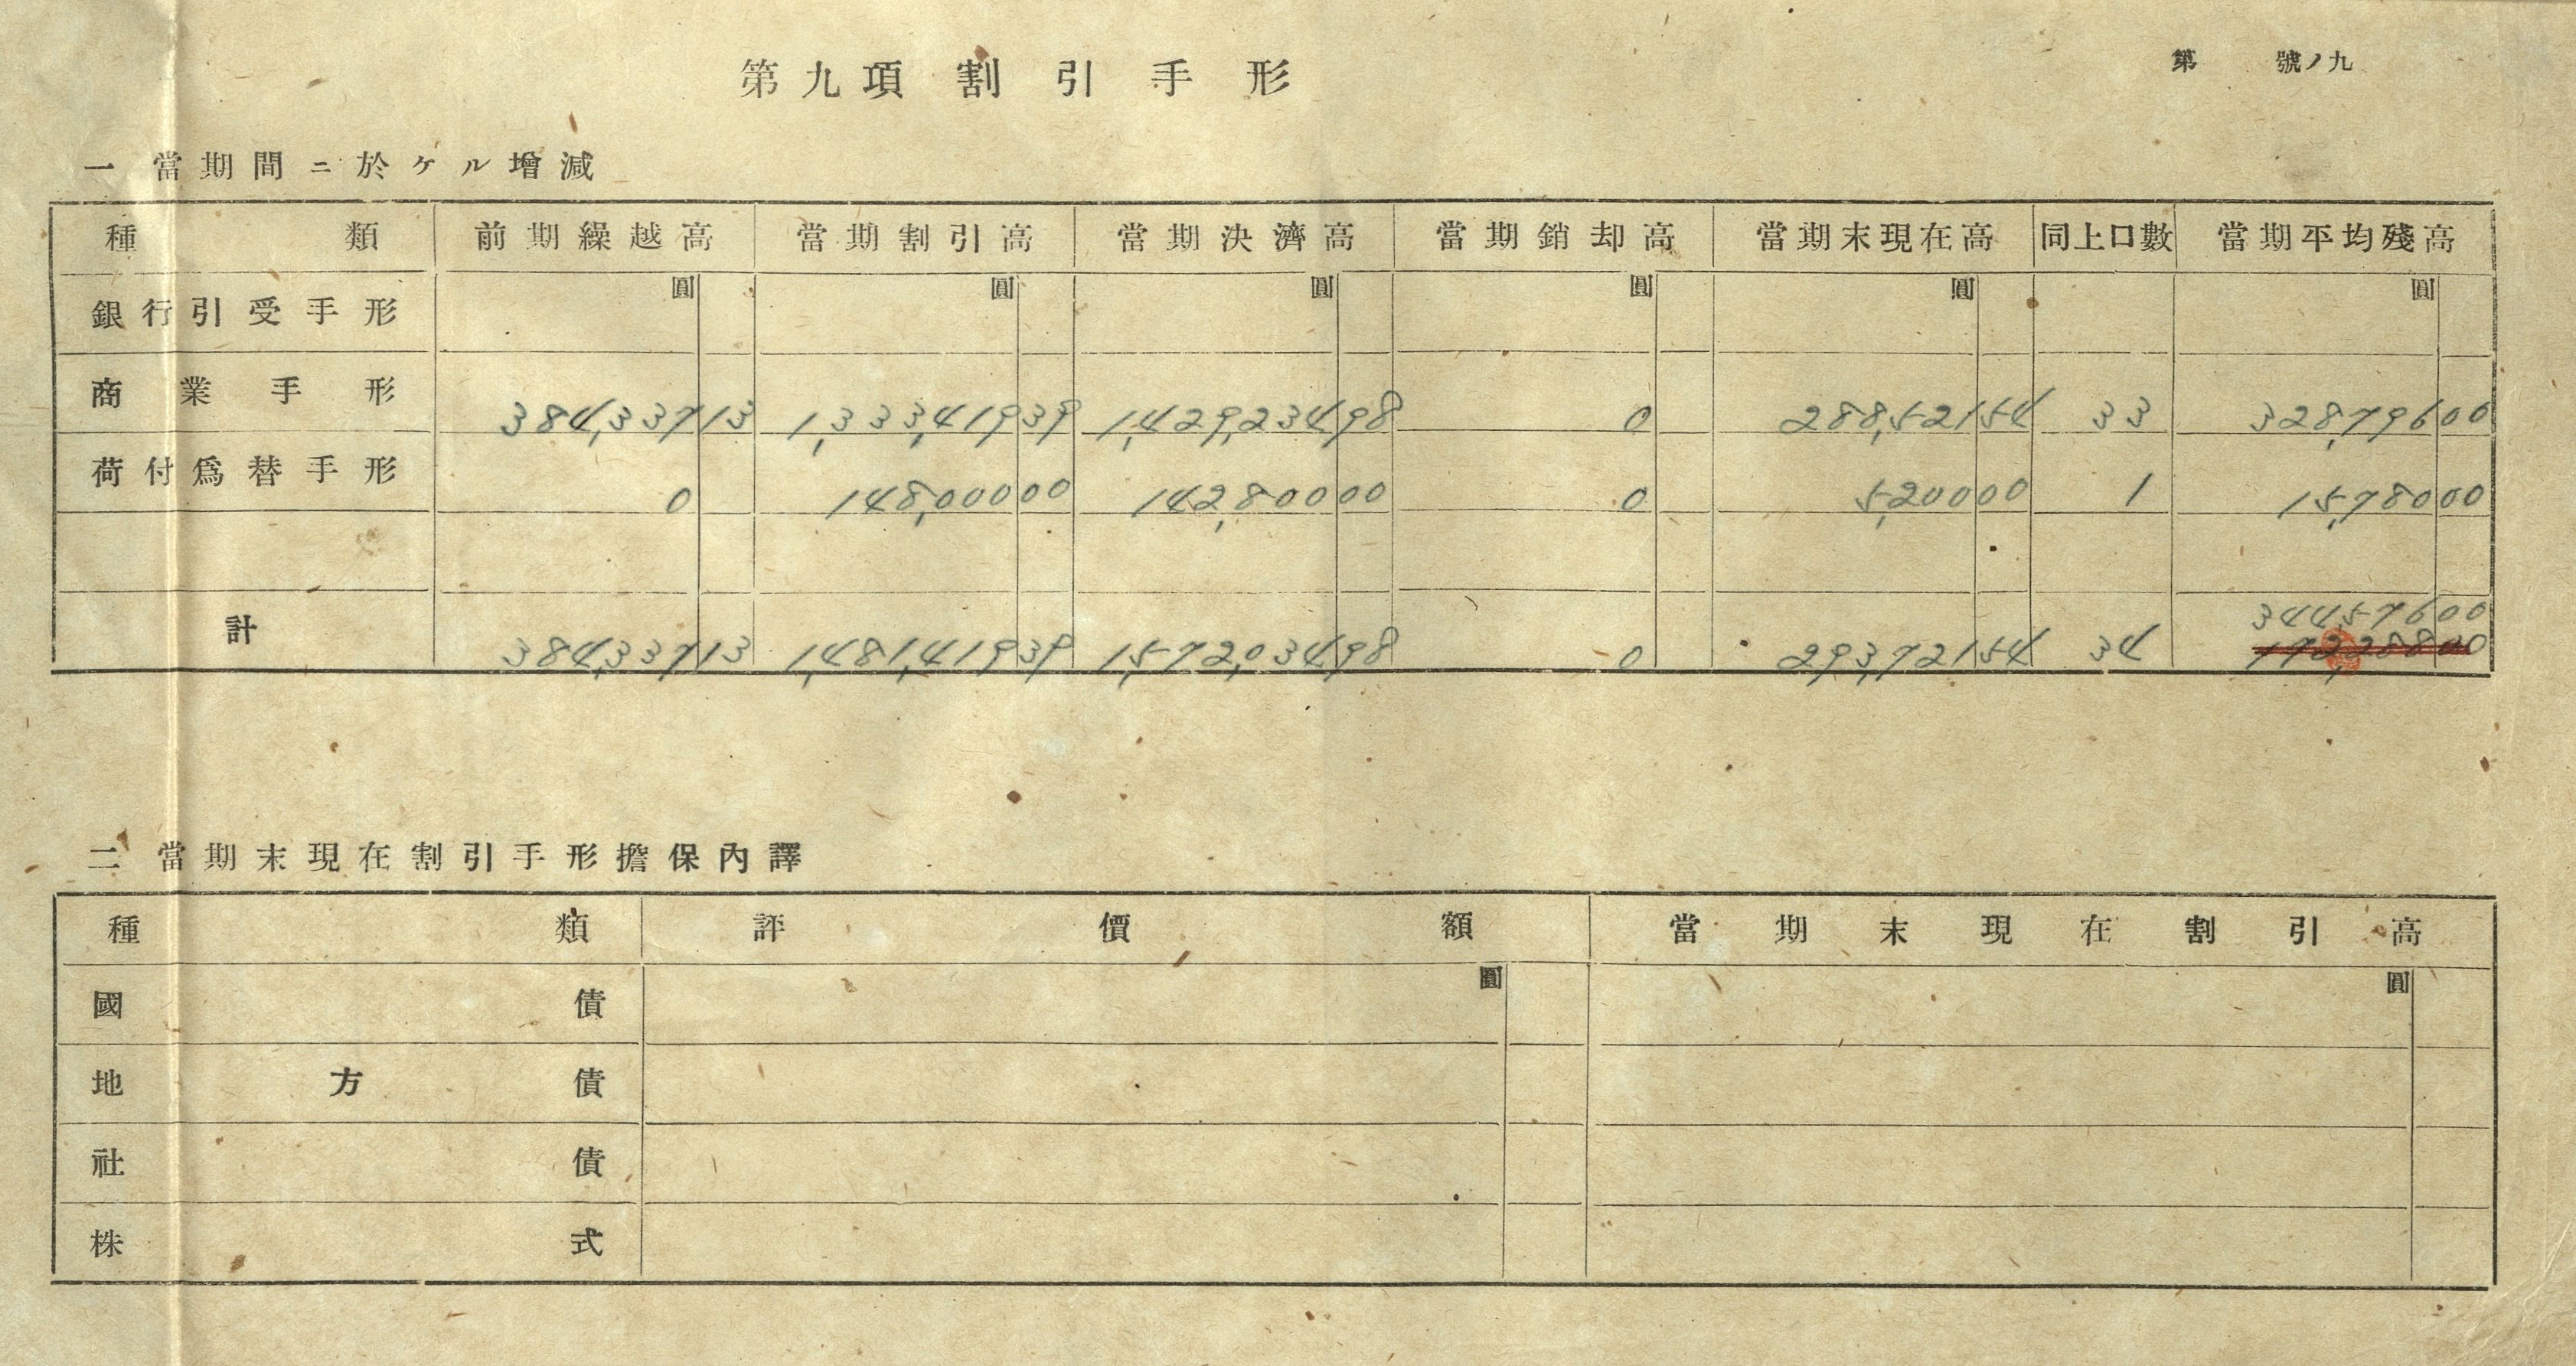 第 號ノ九
第九項 割引手形
一 當期間ニ於ケル增減
種類 前期繰越高 當期割引高 當期決濟高 當期銷却高 當期末現在高 同上口數 當期平均殘高
圓 圓 圓 圓 圓 圓
銀行引受手形
商業手形 384,337 13 1,333,419 39 1,429,234 98 0 288,521 54 33 328,796 00
荷付爲替手形 0 148,000 00 142,800 00 0 5,200 00 1 15,780 00
344,576 00
計 384,337 13 1,481,419 39 1,572,034 98 0 293,721 54 34 172,288 00
二 當期末現在割引手形擔保內譯
種類 評價額 當期末現在割引高
圓 圓
國債
地方債
社債
株式